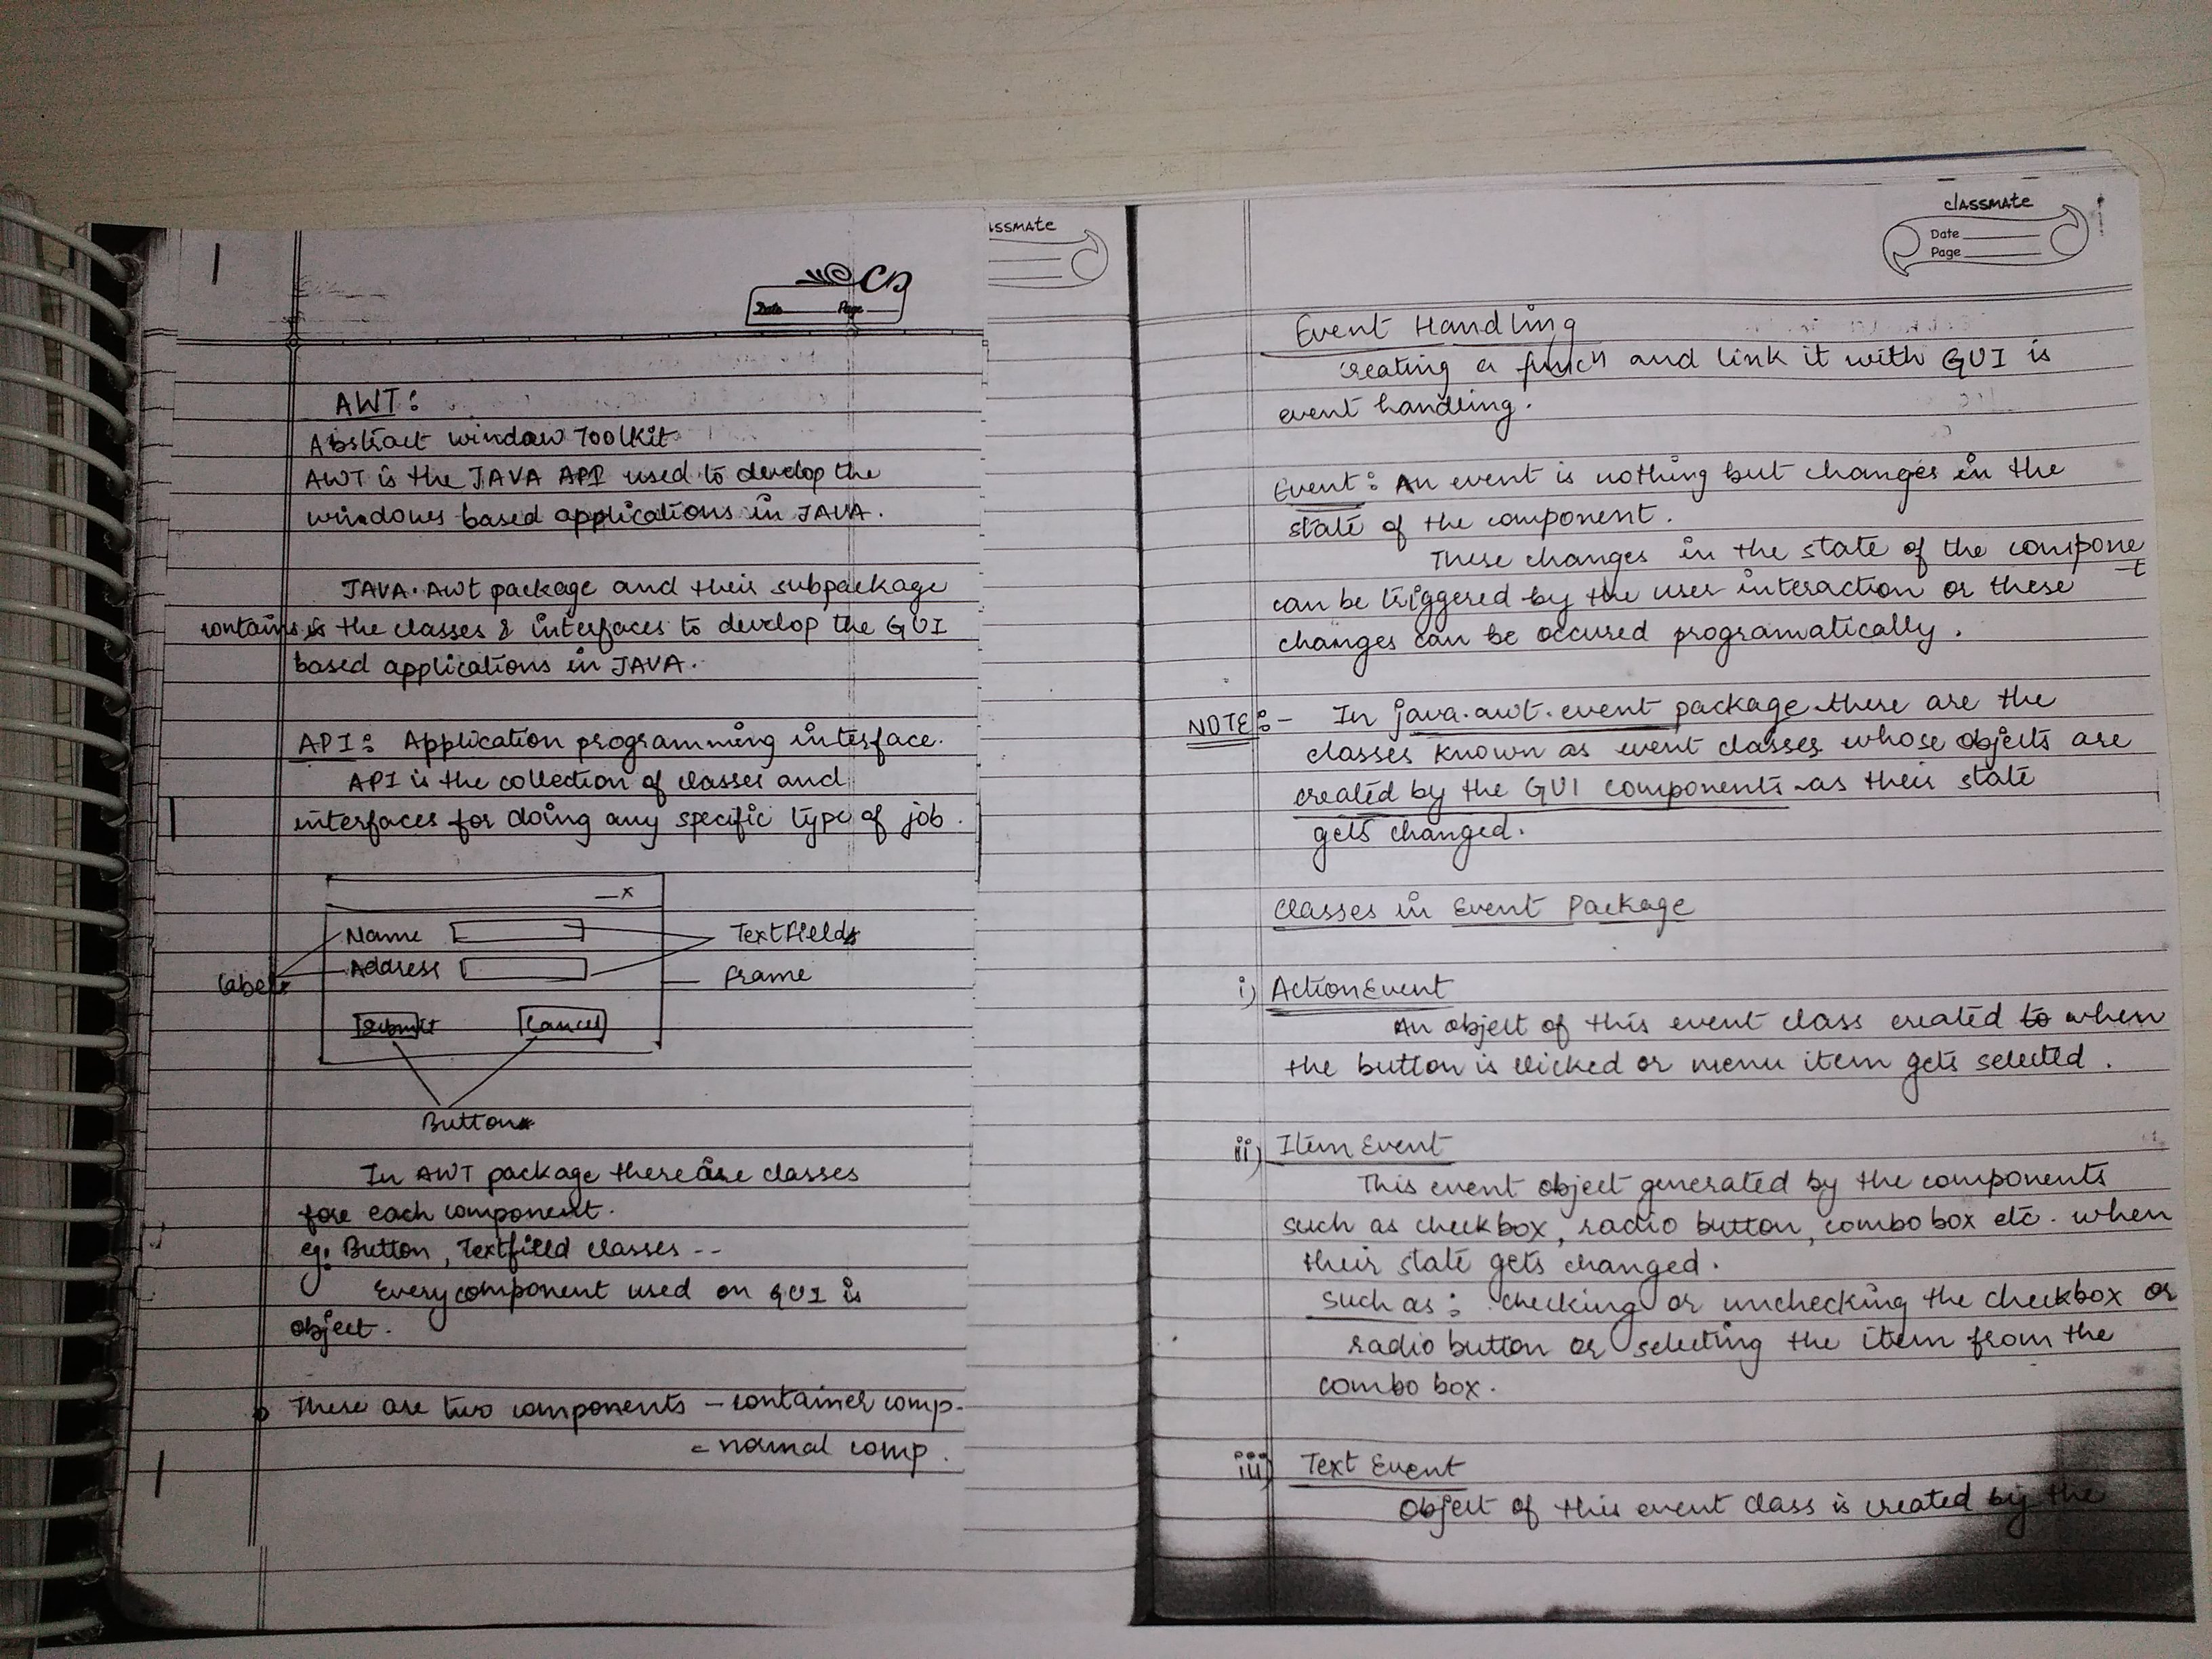 CD
Date Page
AWT:
Abstract window Toolkit
AWT is the JAVA API used to develop the
windows based applications in JAVA.
JAVA.Awt package and their subpackage
contains the classes & interfaces to develop the GUI
based applications in JAVA.
API: Application programming interface.
API is the collection of classes and
interfaces for doing any specific type of job.
- x
Name
Address
Textfields
Label
frame
Submit
Cancel
Button
In AWT package there are classes
for each component.
eg: Button, Textfield classes --
Every component used on GUI is
object.
There are two components - container comp.
- normal comp.
assmate
classmate
Date
Page
Event Handling
creating a funcn and link it with GUI is
event handling.
Event: An event is nothing but changes in the
state of the component.
These changes in the state of the compone
t
can be triggered by the user interaction or these
changes can be occured programatically.
NOTE:- In java.awt.event package there are the
classes known as event classes whose objects are
created by the GUI components as their state
gets changed.
Classes in Event Package
i) ActionEvent
An object of this event class created to when
the button is clicked or menu item gets selected.
ii) Item Event
This event object generated by the components
such as checkbox, radio button, combo box etc. when
their state gets changed.
such as: checking or unchecking the checkbox or
radio button or selecting the item from the
combo box.
iii) Text Event
Object of this event class is created by the